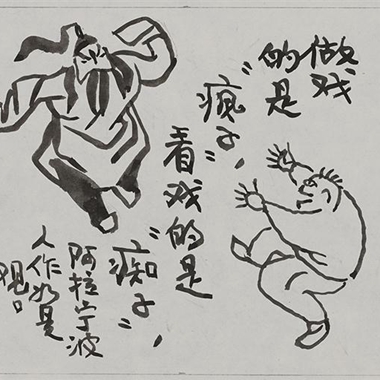 做戏
的是
“疯子”,
看戏的是
“痴子”,
阿拉宁波
人作是